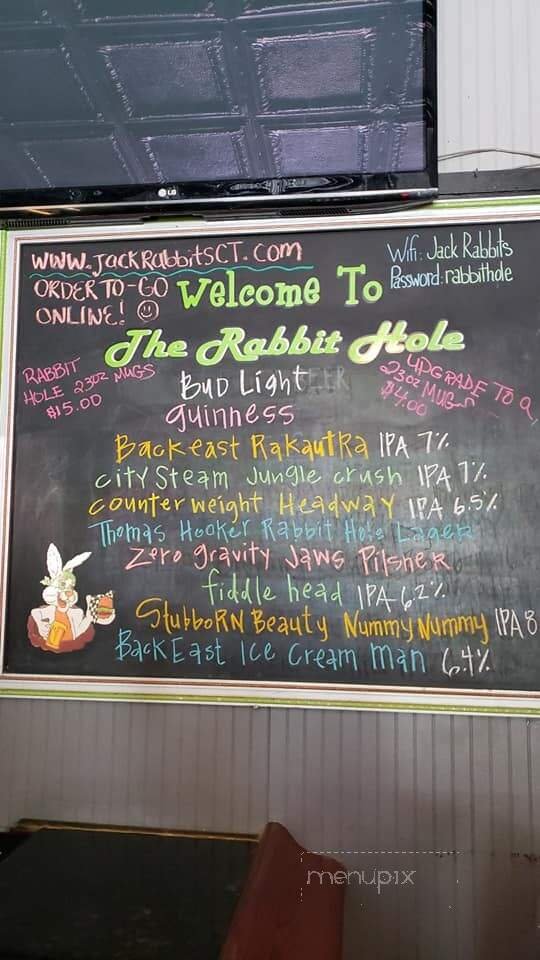 LG
www.JackRabbitsCT.com
ORDER TO-GO
ONLINE!
Wifi: Jack Rabbits
Password: rabbithole
Welcome To
The Rabbit Hole
RABBIT
HOLE 23oz MUGS
$15.00
UPGRADE TO a
23oz MUG
$4.00
Bud Light
guinness
Back east Rakautra IPA 7%
city Steam Jungle crush IPA 7%
counter weight Headway IPA 6.5%
Thomas Hooker Rabbit Hole Lager
Zero gravity Jaws Pilsner
fiddle head IPA 6.2%
StubboRN Beauty Nummy Nummy IPA 8
Back East Ice Cream Man 6.4%
menupix